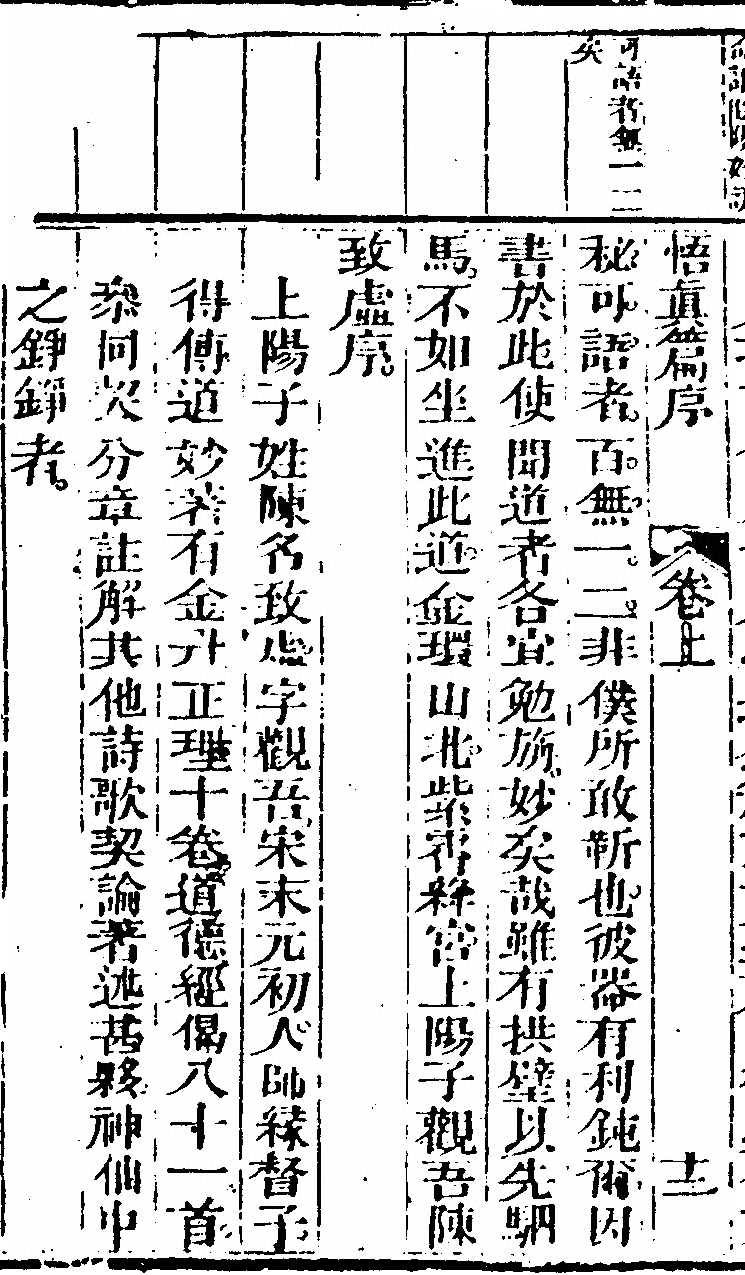 可語者無一二
矣
悟眞篇序
卷上
十二
秘可語者百無一二非僕所敢靳也彼器有利鈍爾因
書於此使聞道者各宜勉旃妙矣哉雖有拱璧以先駟
馬不如坐進此道金環山北紫霄絳宮上陽子觀吾陳
致虛序
上陽子姓陳名致虛字觀吾宋末元初人師緣督子
得傳道妙著有金丹正理十卷道德經偈八十一首
叅同契分章註解其他詩歌契論著述甚夥神仙中
之錚錚者